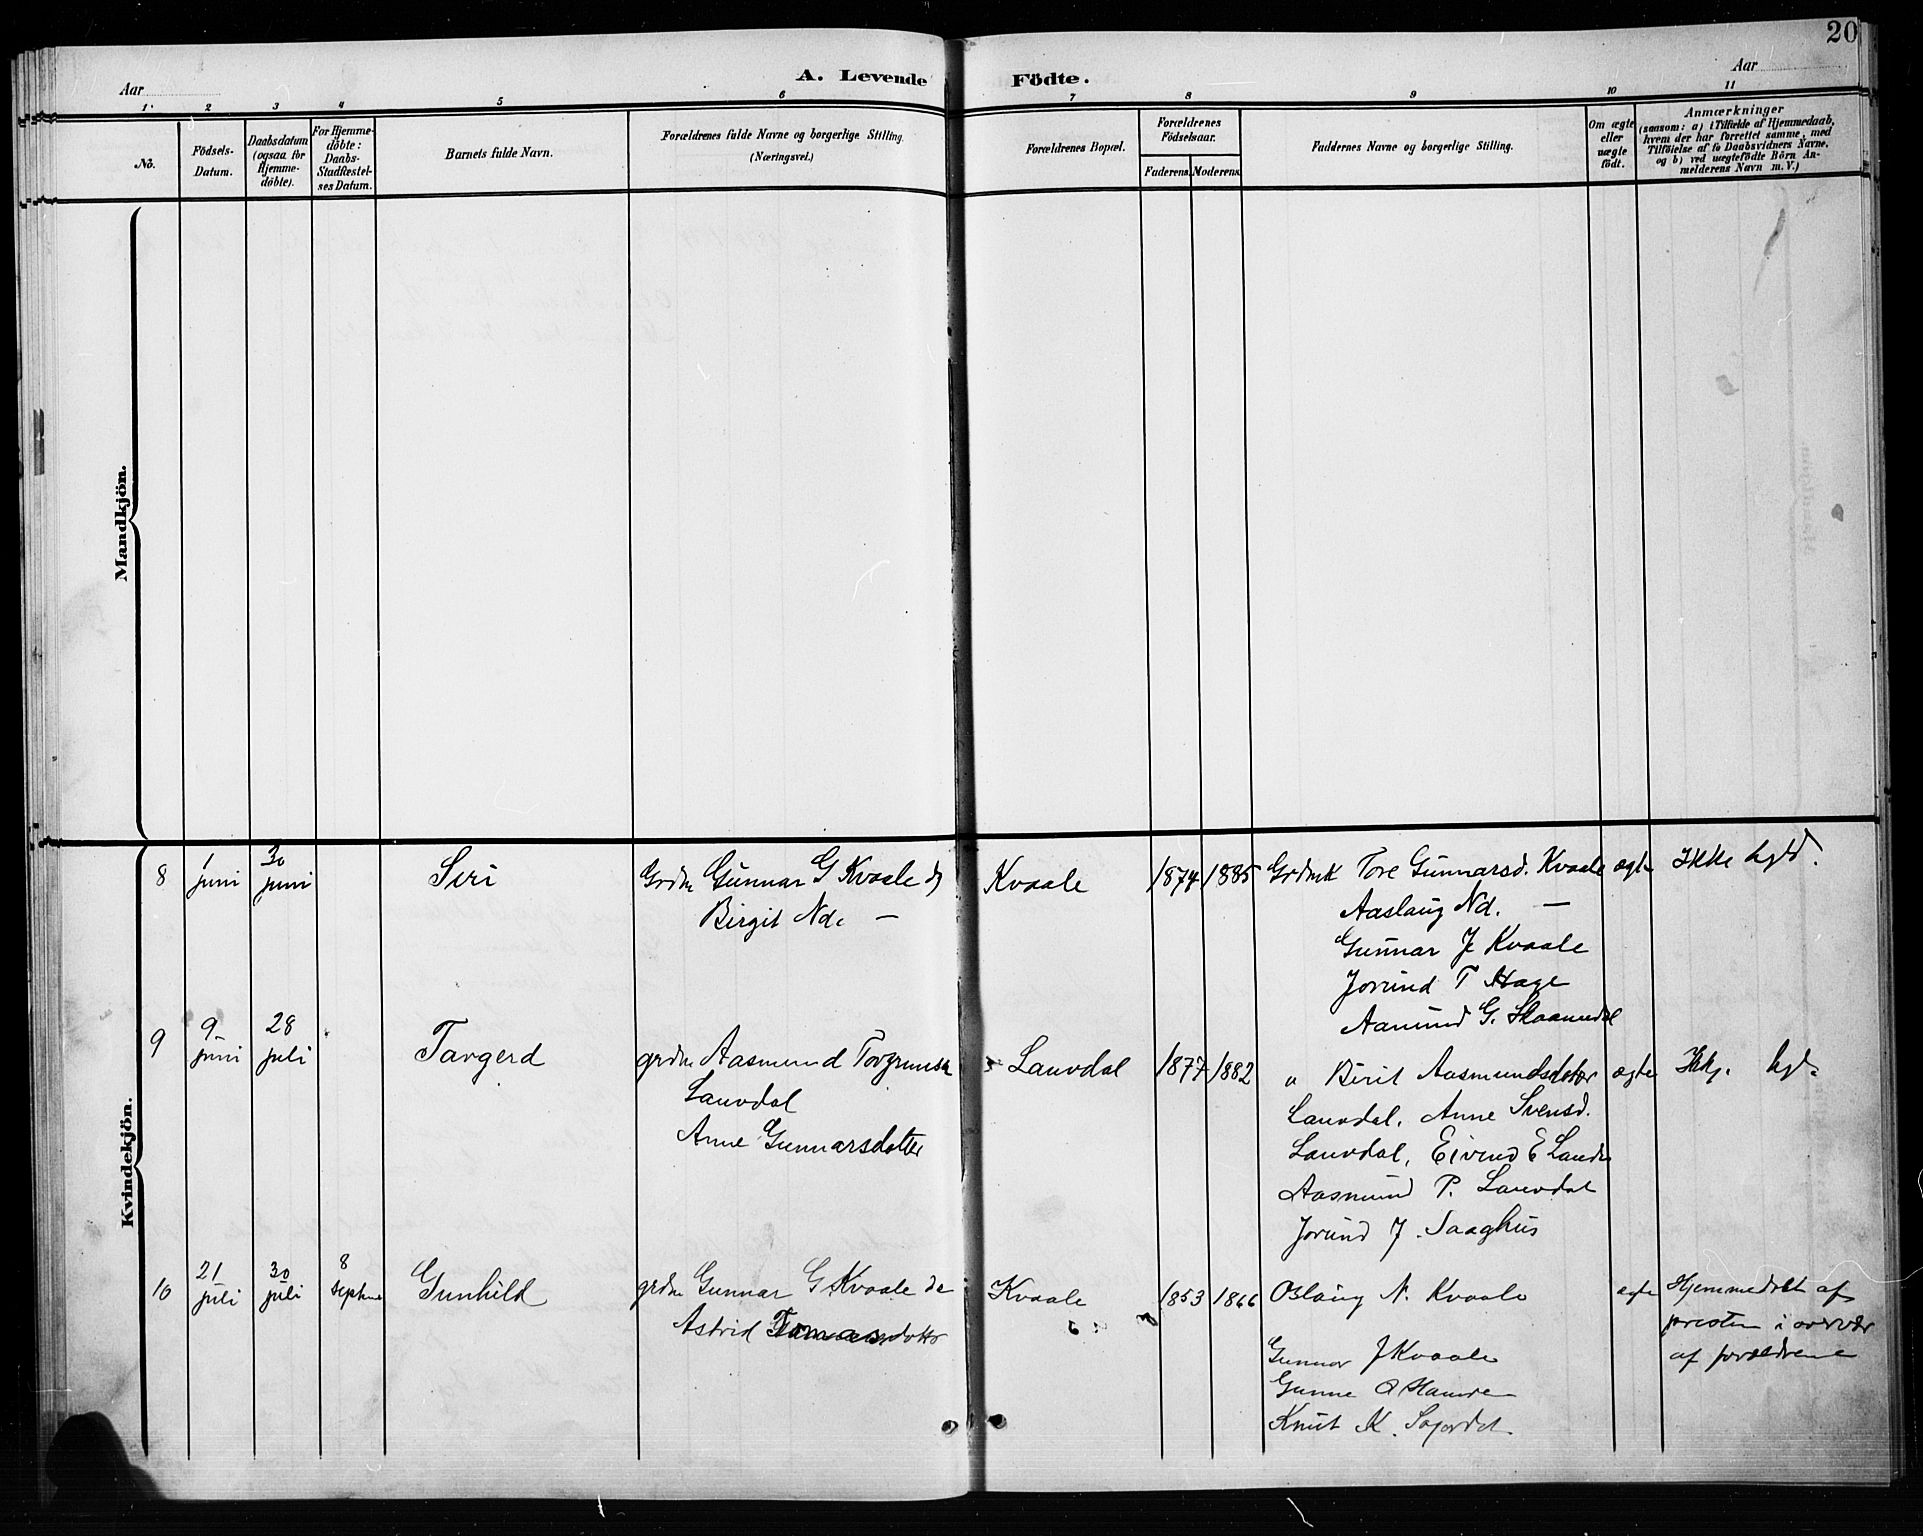 20
A. Levende Födte.
Aar
Aar
1 2 3 4 5 6 7 8 9 10 11
No.
Födsels-Datum.
Daabsdatum (ogsaa for Hjemme-döbte).
For Hjemme-döbte: Daabs-Stadfæstel-ses Datum.
Barnets fulde Navn.
Forældrenes fulde Navne og borgerlige Stilling. (Næringsvei.)
Forældrenes Bopæl.
Forældrenes Födselsaar.
Faderens. Moderens.
Faddernes Navne og borgerlige Stilling.
Om ægte eller uægte födt.
Anmærkninger
(saasom: a) i Tilfælde af Hjemmedaab, hvem der har forrettet samme, med Tilföielse af to Daabsvidners Navne, og b) ved uægtefödte Börn An-melderens Navn m. V.)
Mandkjön.
Kvindekjön.
8 1 juni 30 juni Siri Grdm Gunnar G Kvaale Kvaale 1874 1885 Tore Gunnarsd. Kvaale ægte Ikke
Birgit Nd. —
Aaslaug Nd. —
Gunnar J Kvaale
Jorund T Hage
Aamund G.
9 9 juni 28 juli Targerd grdm Aasmund Lauvdal 1877 1882 Birit Aasmundsdotter ægte
Lauvdal
Lauvdal, Anne Svensd.
Anne Gunnarsdotter
Lauvdal, Eivind E
Aasmund P. Lauvdal
Jorund J.
10 21 juli 30 juli 8 Gunhild grdm Gunnar G Kvaale Kvaale 1853 1866 Oslaug N. Kvaale ægte Hjemmedøbt af
Astrid
presten i overvær
Gunnar J Kvaale
af forældrene
Gunne O
Knut K.